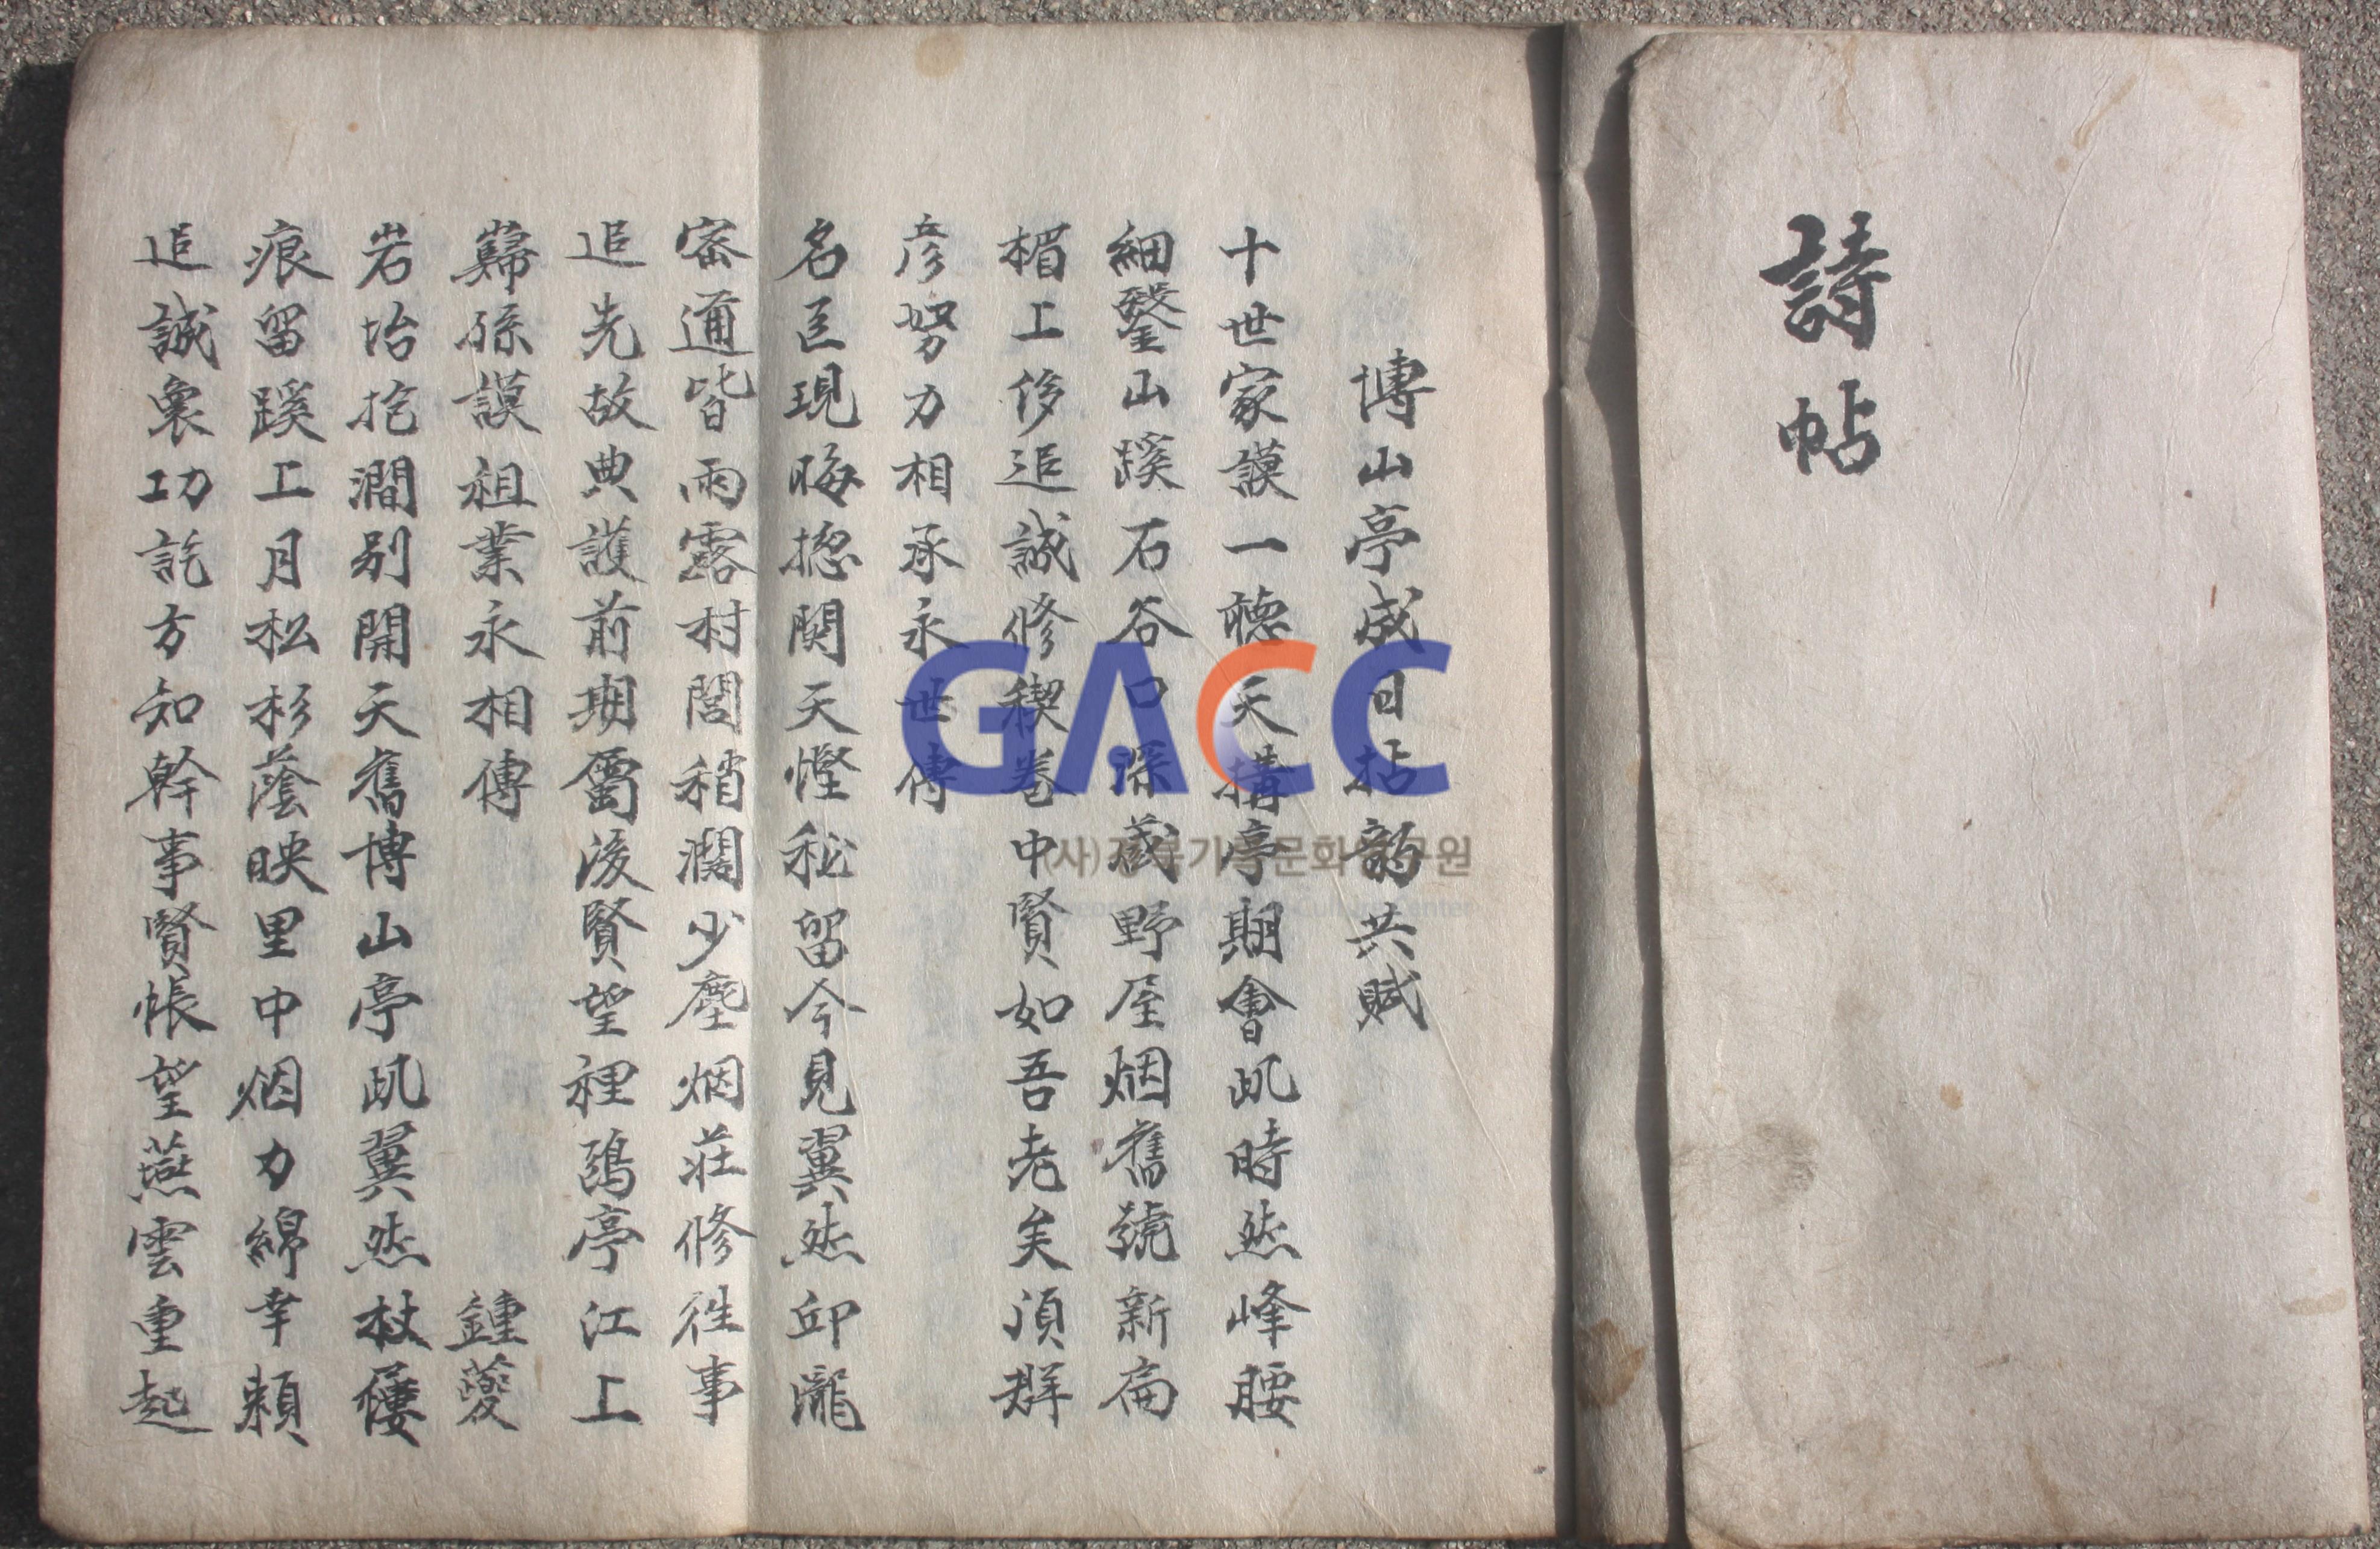 詩帖
博山亭成日拈韵共賦
十世家謨一德天構亭期會此時然峰腰
細鑿山蹊石谷口深藏野屋烟舊號新扁
楣上侈追誠修稧卷中賢如吾老矣湏群
彦努力相承永世傳
名区現晦摠関天慳秘留今見翼然邱瀧
密邇皆雨露村閭稍濶少塵烟莊修徃事
追先故典護前期蜀後賢望裡鵄亭江上
歸孫謨祖業永相傳
鍾夔
岩坮挖澗別開天舊博山亭此翼然杖屨
痕留蹊上月松杉蔭映里中烟力綿幸頼
追誠衆功訖方知幹事賢悵望燕雲重起
GACC
(사) 기 문화 구원
Culture Center